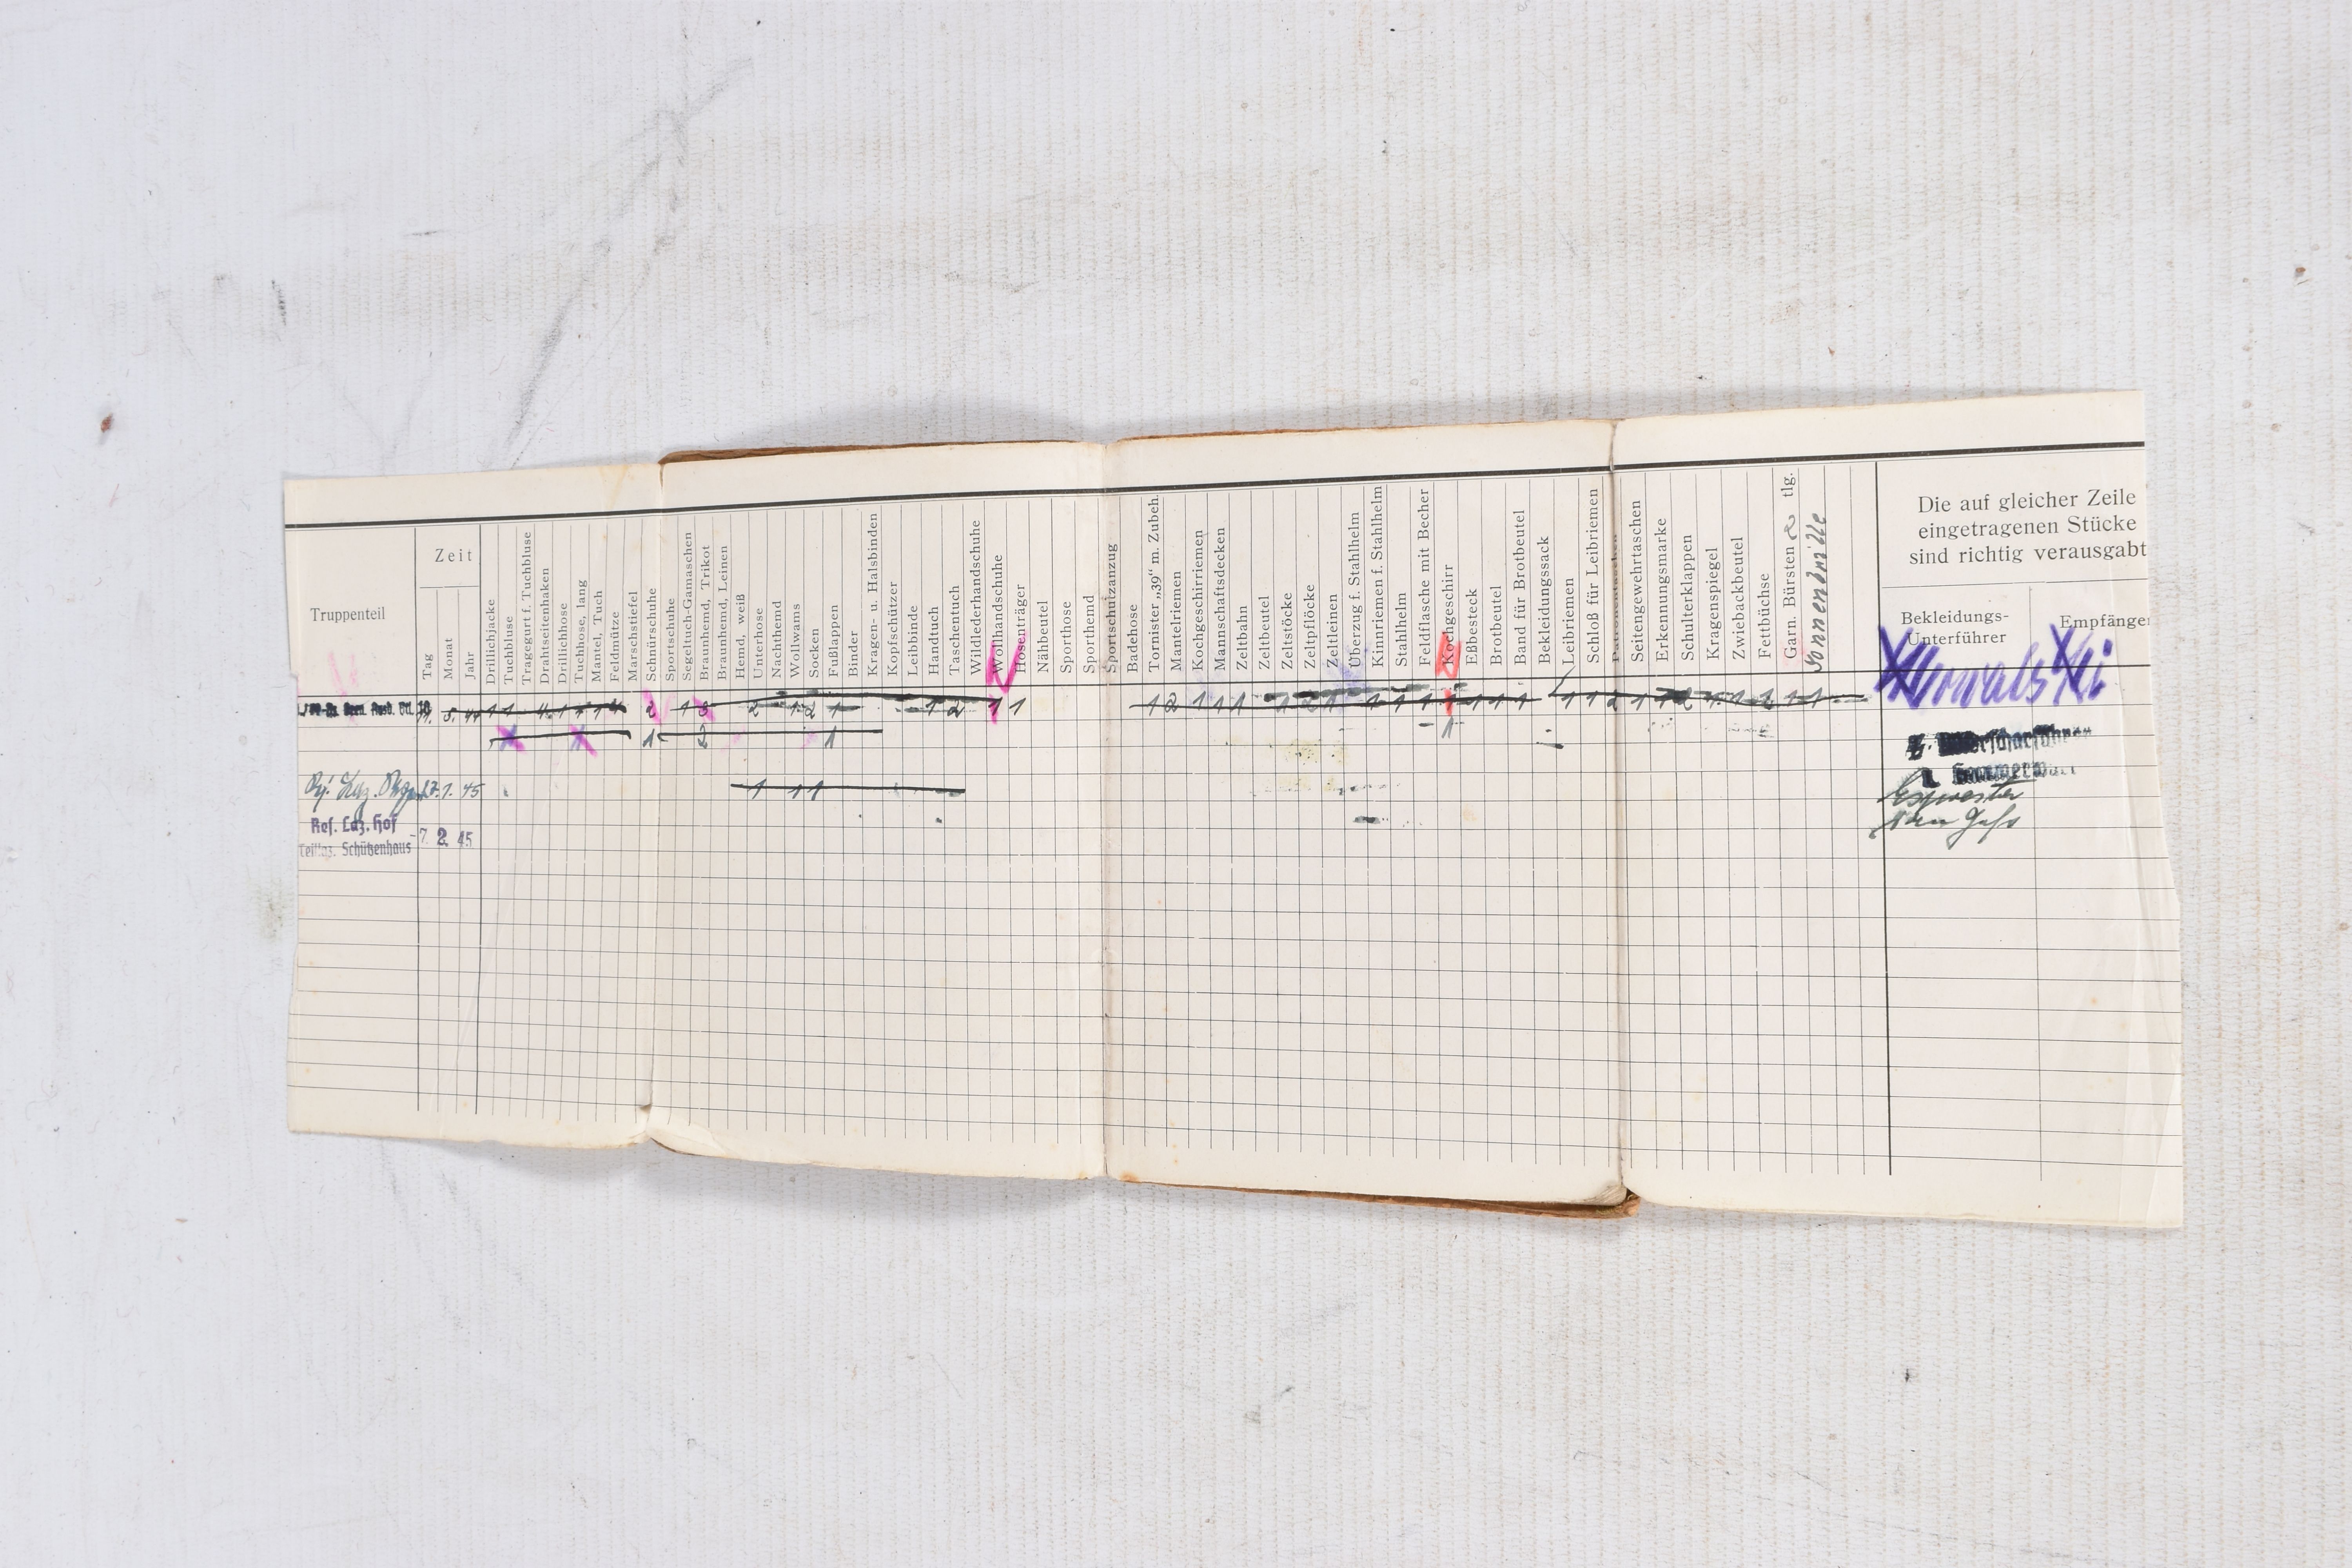 Truppenteil
Zeit
Tag
Monat
Jahr
Drillichjacke
Tuchbluse
Tragegurt f. Tuchbluse
Drahtseitenhaken
Drillichhose
Tuchhose, lang
Mantel, Tuch
Feldmütze
Marschstiefel
Schnürschuhe
Sportschuhe
Segeltuch-Gamaschen
Braunhemd, Trikot
Braunhemd, Leinen
Hemd, weiß
Unterhose
Nachthemd
Wollwams
Socken
Fußlappen
Binder
Kragen- u. Halsbinden
Kopfschützer
Leibbinde
Handtuch
Taschentuch
Wildlederhandschuhe
Wollhandschuhe
Hosenträger
Nähbeutel
Sporthose
Sporthemd
Sportschutzanzug
Badehose
Tornister „39“ m. Zubeh.
Mantelriemen
Kochgeschirriemen
Mannschaftsdecken
Zeltbahn
Zeltbeutel
Zeltstöcke
Zeltpflöcke
Zeltleinen
Überzug f. Stahlhelm
Kinnriemen f. Stahlhelm
Stahlhelm
Feldflasche mit Becher
Kochgeschirr
Eßbesteck
Brotbeutel
Band für Brotbeutel
Bekleidungssack
Leibriemen
Schloß für Leibriemen
Patronentaschen
Seitengewehrtaschen
Erkennungsmarke
Schulterklappen
Kragenspiegel
Zwiebackbeutel
Fettbüchse
Garn. Bürsten 2 tlg.
Sonnenbrille
Die auf gleicher Zeile
eingetragenen Stücke
sind richtig verausgabt
Bekleidungs-
Unterführer
Empfänger
5. 44 1 1 4 1 1 1 4 2 1 3 2 1 2 1 1 2 1 1 1 2 1 1 1 1 2 1 1 1 1 1 1 1 1 1 1 1 2 1 1 2 1 1 2 1 1
1 2 1 1
Laz. 1. 45 1 1 1
Res. Laz. Hof
Teillaz. Schützenhaus
-7. 2. 45